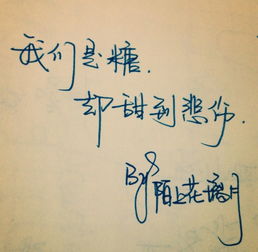 我们是糖.
却甜到悲伤.
By 陌上花璃月